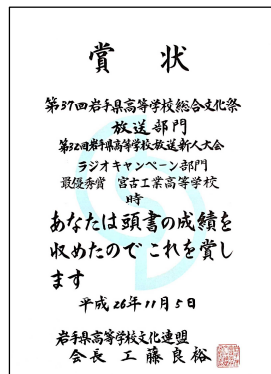 賞状
第37回岩手県高等学校総合文化祭
放送部門
第32回岩手県高等学校放送新人大会
ラジオキャンペーン部門
最優秀賞 宮古工業高等学校
時
あなたは頭書の成績を
収めたのでこれを賞し
ます
平成26年11月5日
岩手県高等学校文化連盟
会長 工藤良裕